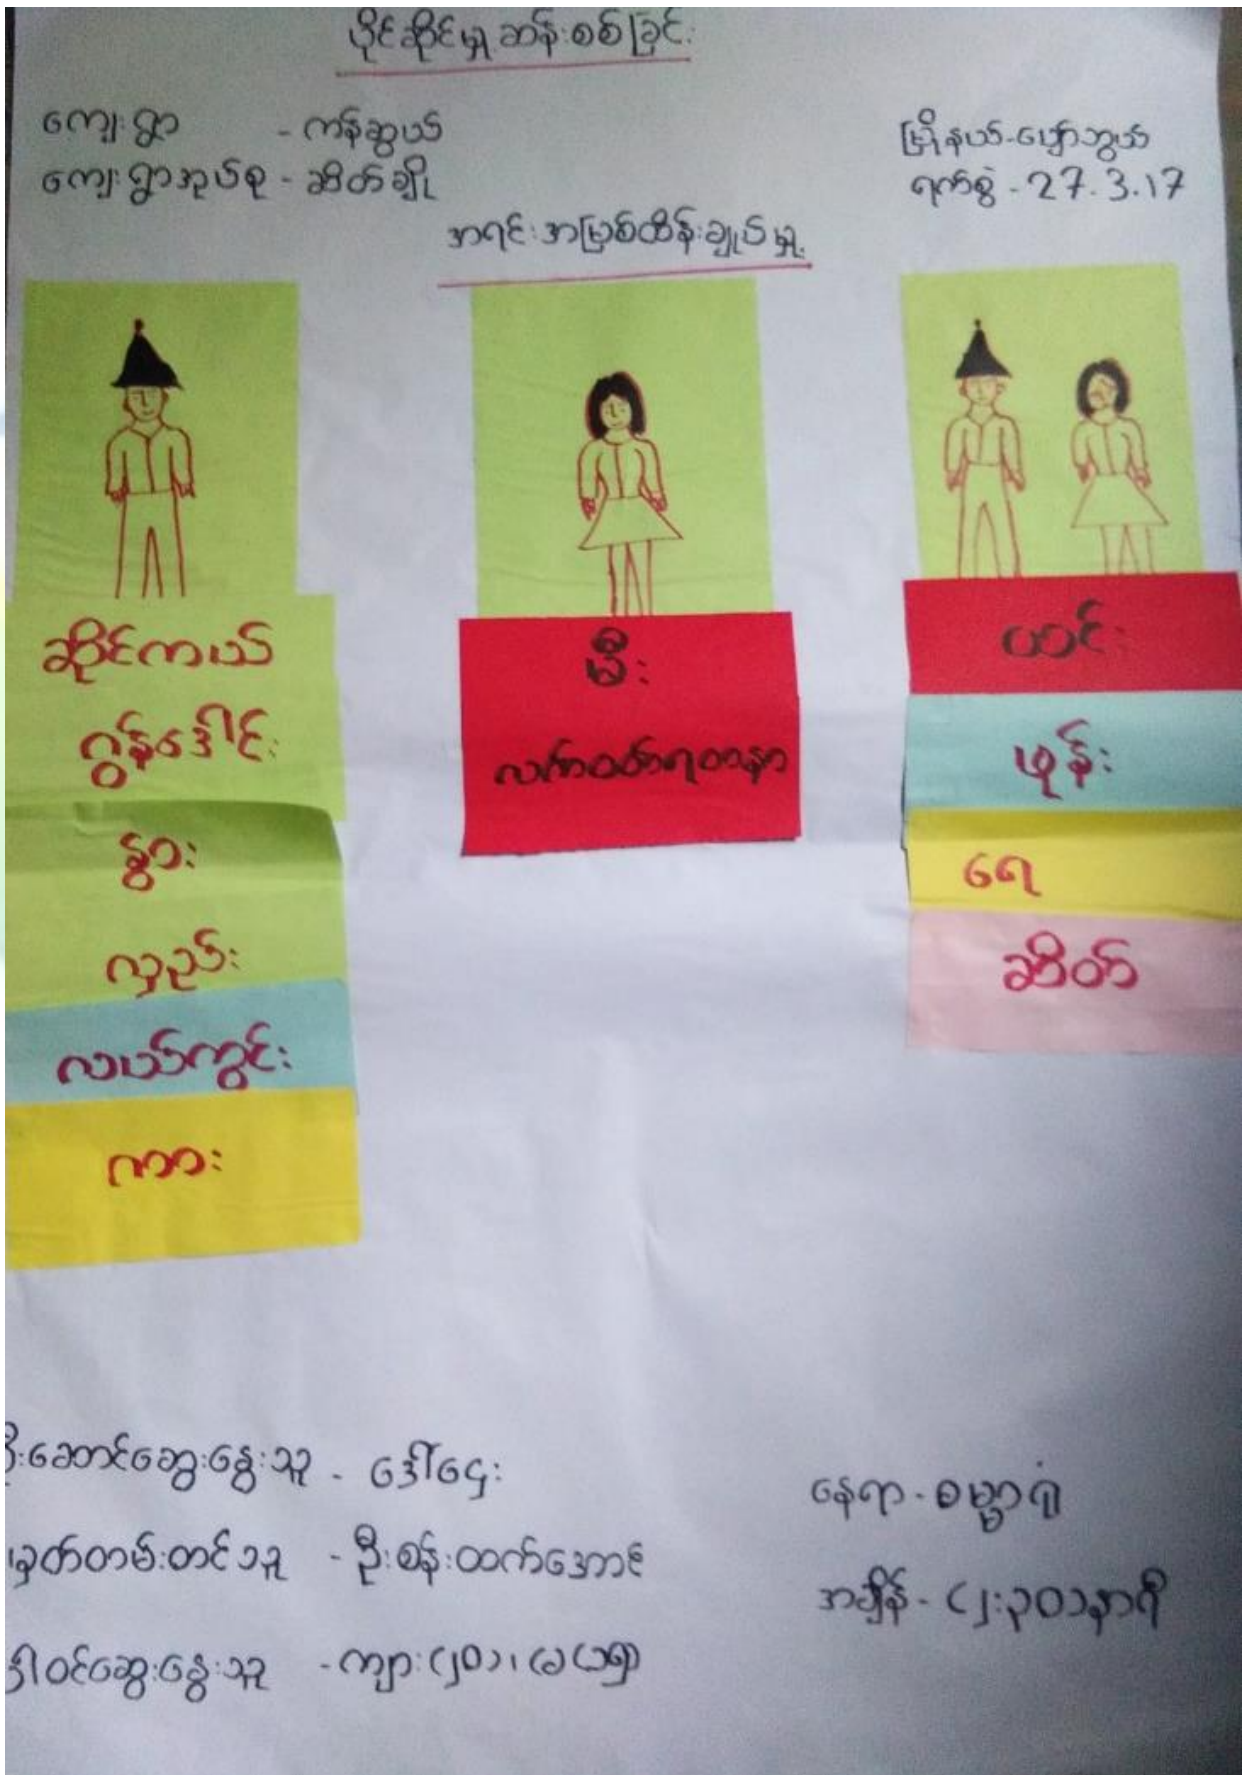 ပိုင်ဆိုင်မှု ဆန်းစစ်ခြင်း
ကျေးရွာ - ကန်ဆွယ်
ကျေးရွာအုပ်စု - ဆိတ်ချို
မြို့နယ်-ပျော်ဘွယ်
ရက်စွဲ - 27.3.17
အရင်းအမြစ်ထိန်းချုပ်မှု
ဆိုင်ကယ်
ဂွန်ဒေါင်း
နွား
လှည်း
လယ်ကွင်း
ကား
မီး
လက်ဝတ်ရတနာ
ထင်း
ဖုန်း
ရေ
ဆိတ်
ဦးဆောင်ဆွေးနွေးသူ - ဒေါ်ဌေး
မှတ်တမ်းတင်သူ - ဦးစန်းထက်အောင်
ပါဝင်ဆွေးနွေးသူ - ကျား(၂၀)၊ (မ
နေရာ - ဓမ္မာရုံ
အချိန် - (၂:၃၀)နာရီ